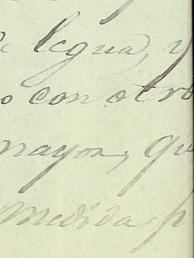 legua, y
o con otro
mayor, qu
medida p